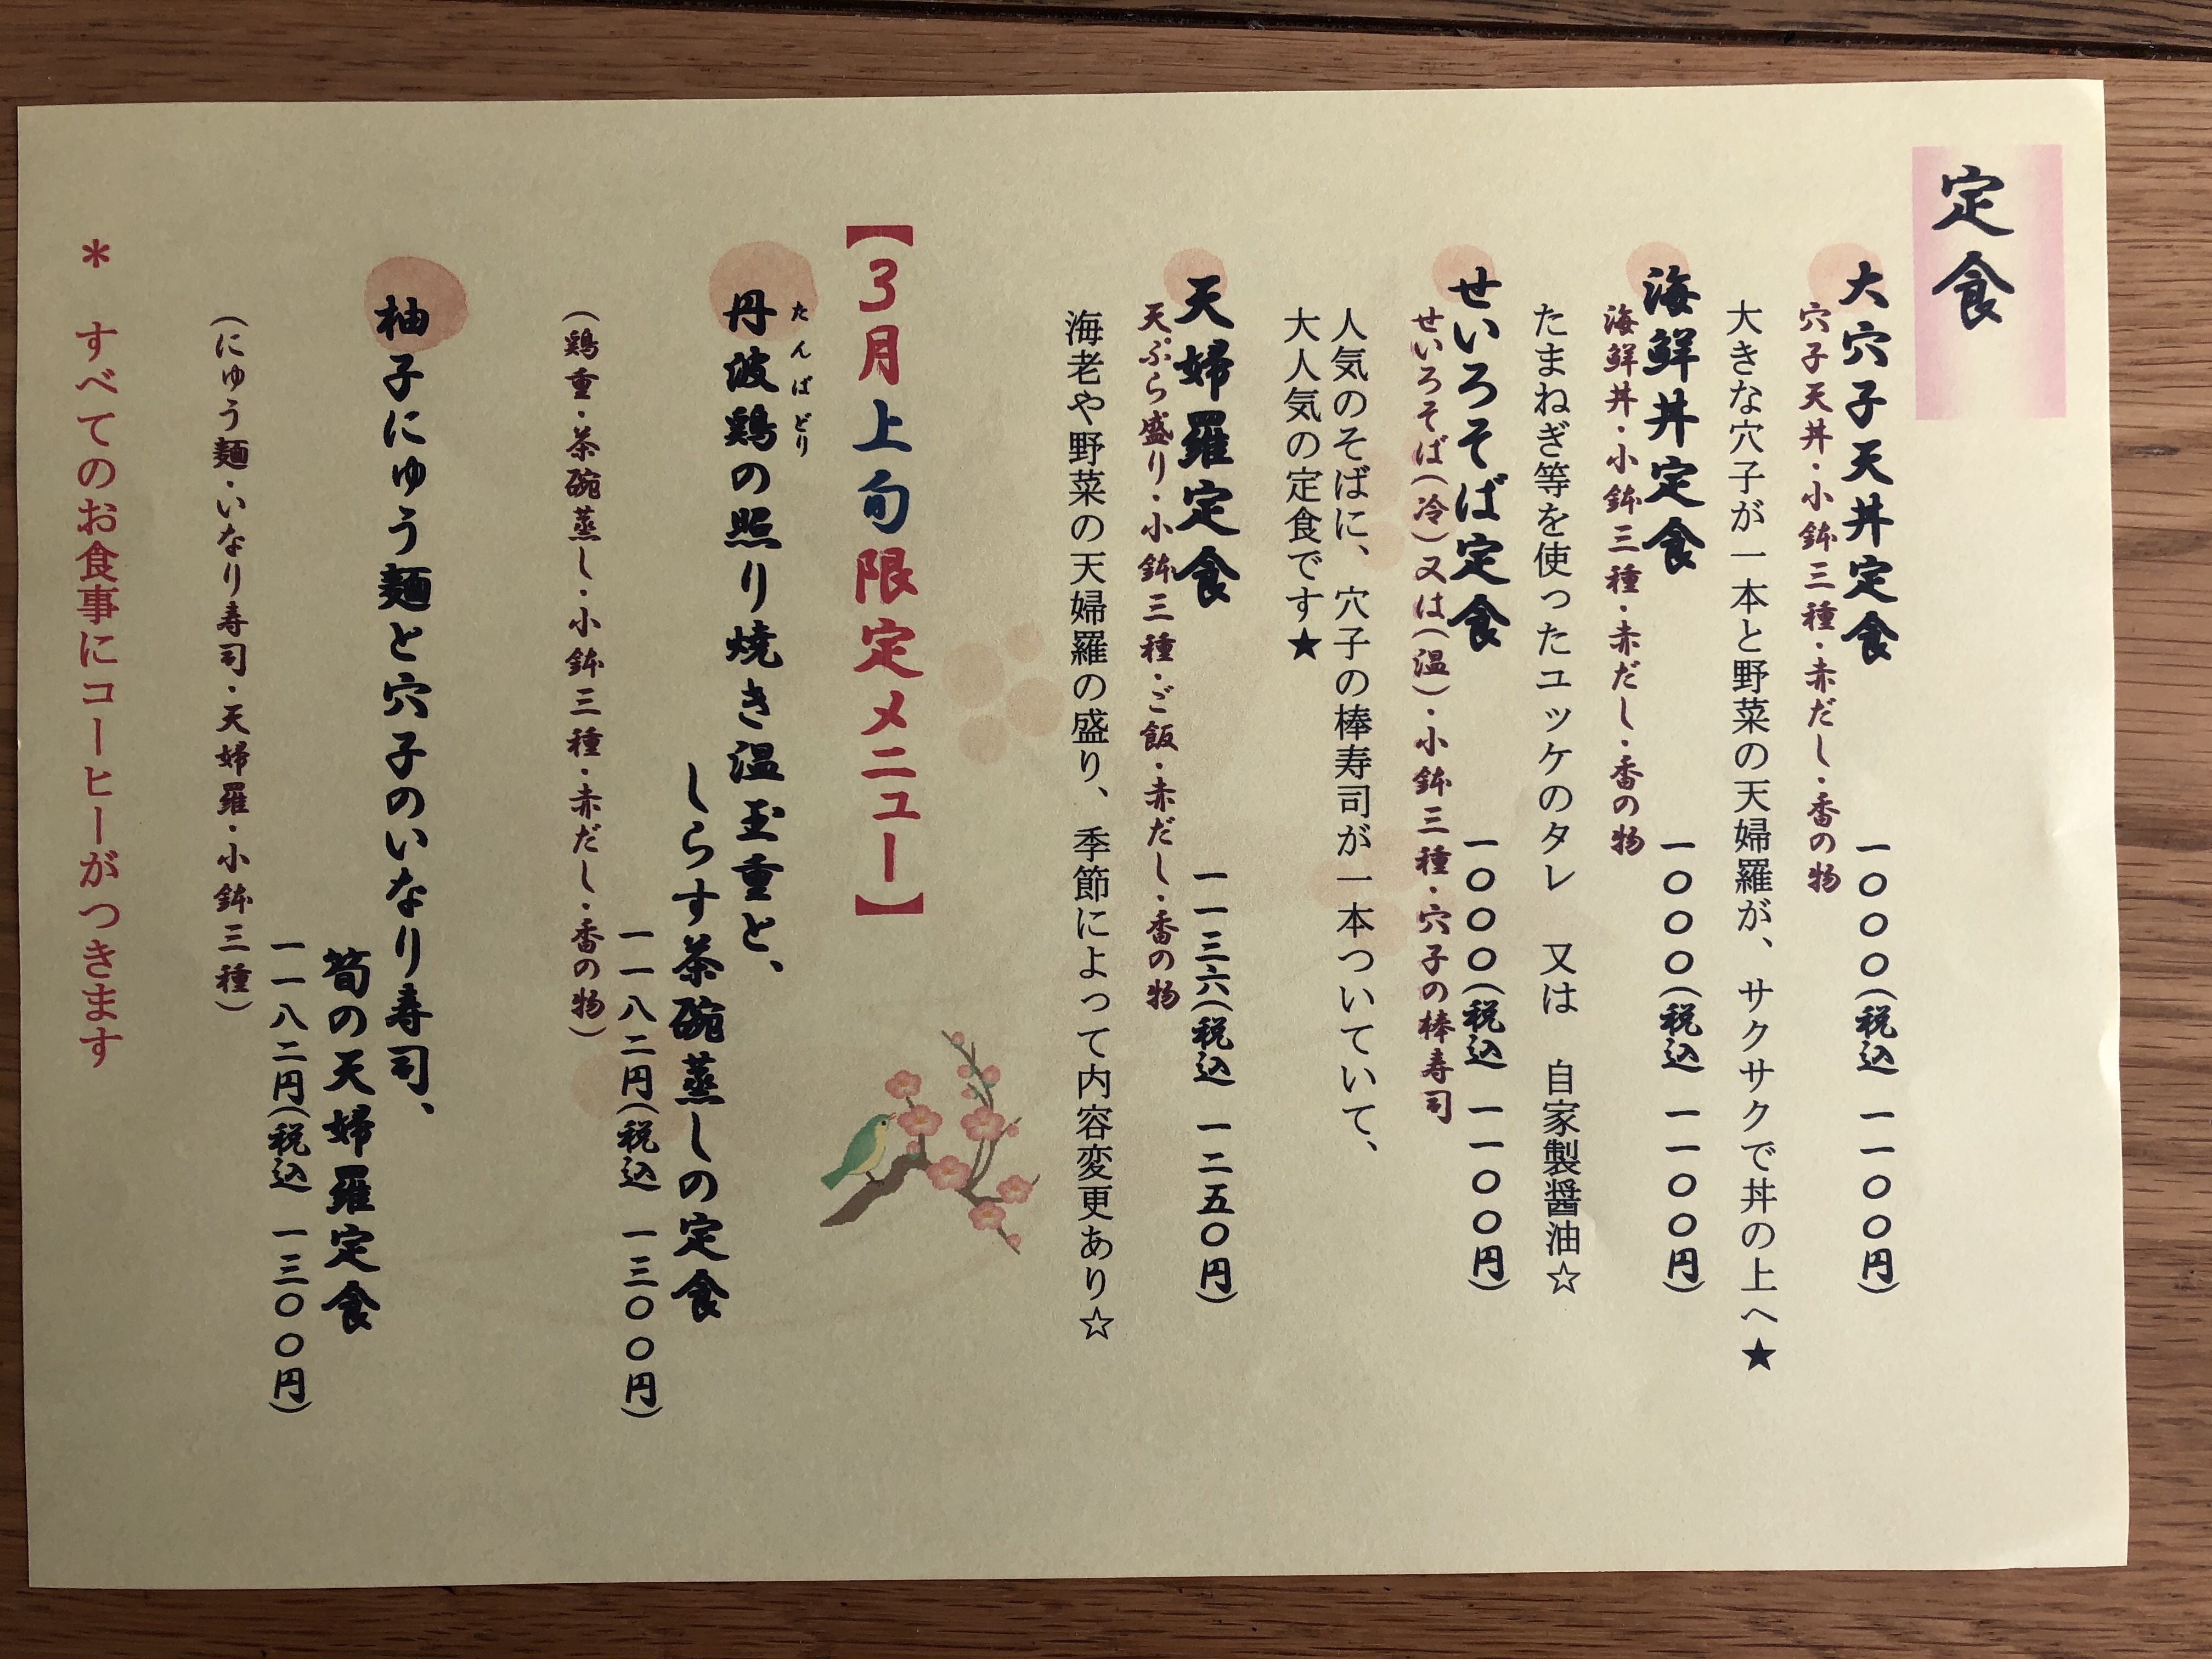 定食
大穴子天丼定食 一〇〇〇(税込 一一〇〇円)
穴子天丼・小鉢三種・赤だし・香の物
大きな穴子が一本と野菜の天婦羅が、サクサクで丼の上へ★
海鮮丼定食 一〇〇〇(税込 一一〇〇円)
海鮮丼・小鉢三種・赤だし・香の物
たまねぎ等を使ったユッケのタレ 又は 自家製醤油☆
せいろそば定食 一〇〇〇(税込 一一〇〇円)
せいろそば(冷)又は(温)・小鉢三種・穴子の棒寿司
人気のそばに、穴子の棒寿司が一本ついていて、
大人気の定食です★
天婦羅定食 一一三六(税込 一二五〇円)
天ぷら盛り・小鉢三種・ご飯・赤だし・香の物
海老や野菜の天婦羅の盛り、季節によって内容変更あり☆
【3月上旬限定メニュー】
たんばどり
丹波鶏の照り焼き温玉重と、
しらす茶碗蒸しの定食
一一八二円(税込 一三〇〇円)
(鶏重・茶碗蒸し・小鉢三種・赤だし・香の物)
柚子にゅう麺と穴子のいなり寿司、
筍の天婦羅定食
一一八二円(税込 一三〇〇円)
(にゅう麺・いなり寿司・天婦羅・小鉢三種)
＊ すべてのお食事にコーヒーがつきます